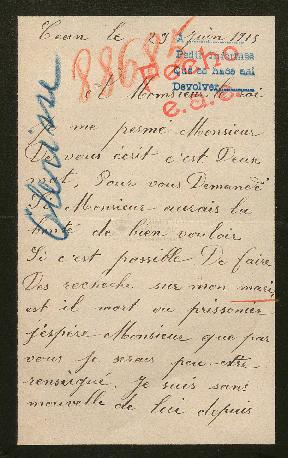 Caen le 29 Juin 1915
Pedir informes
Que se hace así
Devolver
88685
Hecho
e.a.e.
A Monsieur le Roi
me permé Monsieur
De vous écrit c'est Deux
mot, Pour vous Demandé
Si Monsieur aurais la
bonté de bien vouloir
Si c'est possible De faire
Des recheche sur mon mari,
est il mort ou prissonier
j'espère Monsieur que par
vous je serais peu etre
renseigné. Je suis sans
nouvelle de lui depuis